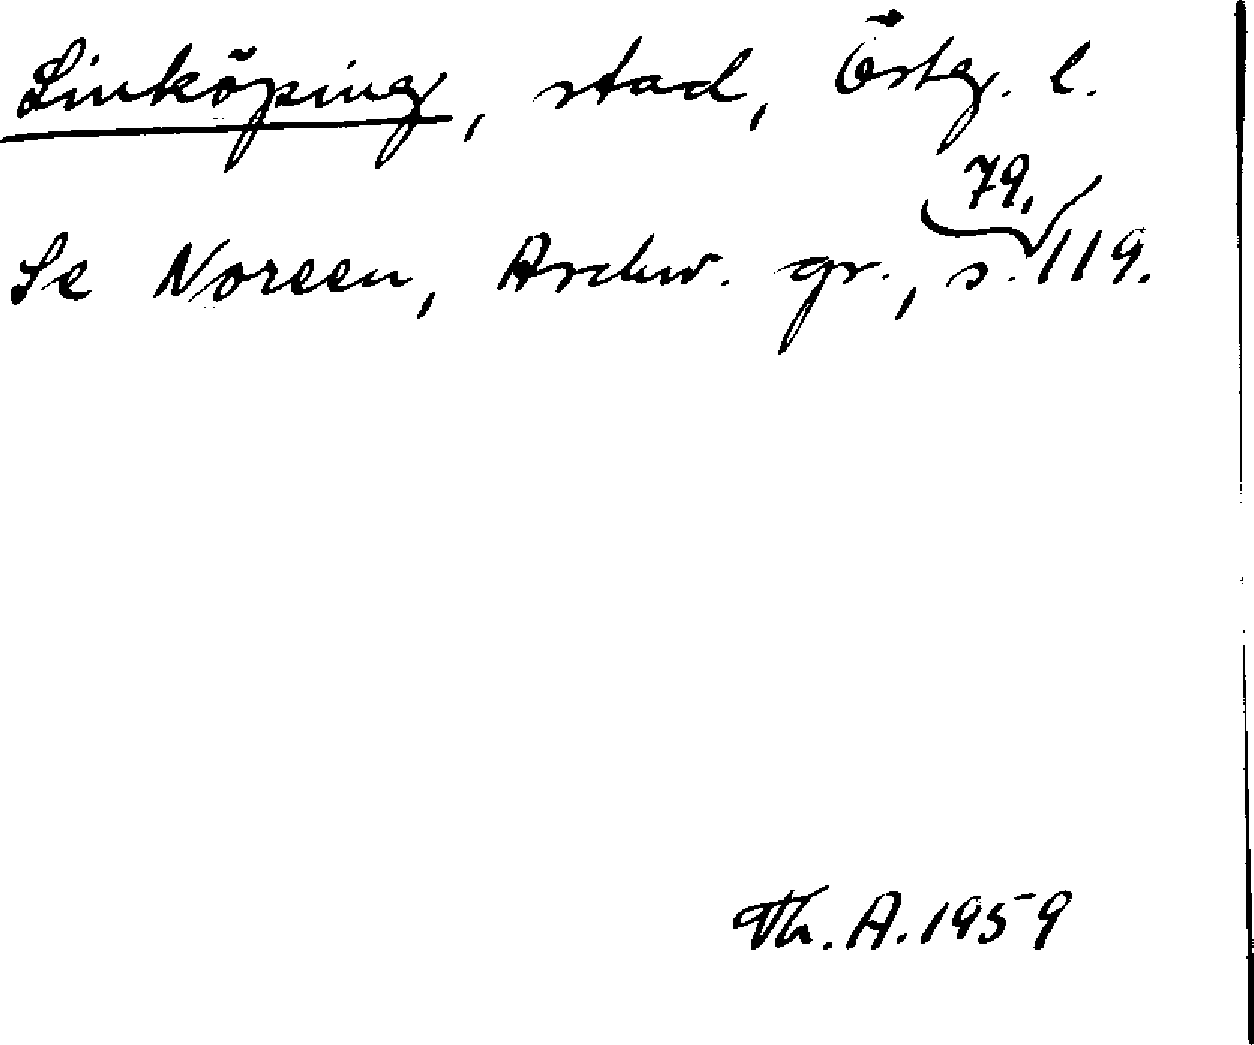 Linköping, stad, Östg. l.
Se Noreen, Arduw. gr., s. 79, 119.
Th. A. 1959